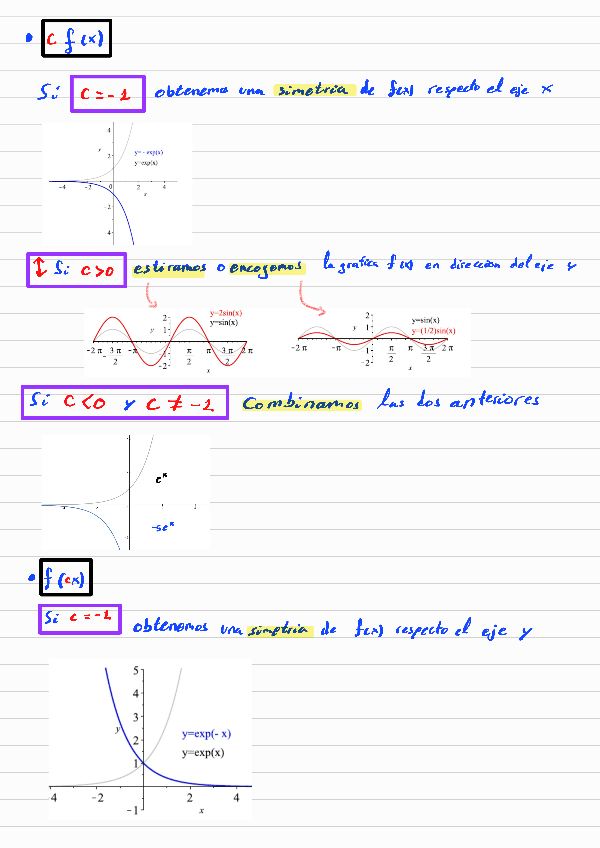 • c f(x)
Si c = -1 obtenemo una simetria de f(x) respecto el eje x
4
y
y= - exp(x)
2
y=exp(x)
-4 -2 0 2 4
x
2
4
↕ Si c>0 estiramos o encogemos la grafica f(x) en direccion del eje y
y=2sin(x)
y=sin(x)
y
2
1
-2 π - 3 π/2 -π π/2 π 3 π/2 2 π
-1
-2
x
y=sin(x)
y=(1/2)sin(x)
y
2
1
-2 π -π π/2 π 3 π/2 2 π
-1
-2
x
Si c<0 y c ≠ -1 Combinamos las dos anteriores
eˣ
-5eˣ
• f(cx)
Si c = -1 obtenemos una simetria de f(x) respecto el eje y
5
4
3
y
2
y=exp(- x)
y=exp(x)
1
4 -2 0 2 4
-1
x